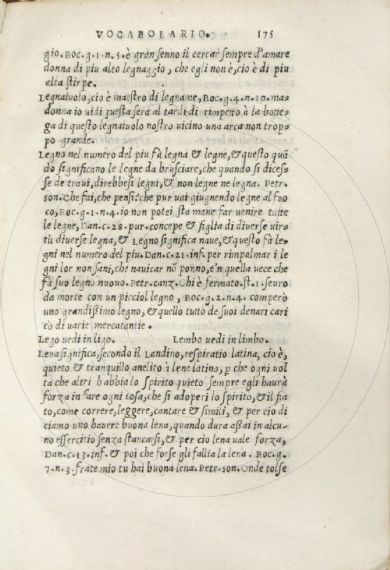 VOCABOLARIO. 175
gio. Boc. g. 1. n. 5. è gran senno il cercar sempre d'amare
donna di piu alto legnaggio, che egli non è, cio è di piu
alta stirpe.
Legnaiuolo, cio è maestro di legname, Boc. g. 4. n. 10. ma-
donna io uidi questa sera al tardi di rimpeto à la botte-
ga di questo legnaiuolo nostro uicino una arca non trop-
po grande.
Legno nel numero del piu fà legna & legne, & questo quā
do significano le legne da brusciare, che quando si dices-
se de traui, direbbesi legni, & non legne ne legna. Petr.
son. Che fai, che pensi? che pur uai giugnendo legne al fuo
co, Boc. g. 1. n. 4. io non potei sta mane far uenire tutte
le legne, Dan. c. 28. pur. concepe & figlia di diuerse uir-
tù diuerse legna, & Legno significa naue, & questo fà le-
gni nel numero del piu. Dan. c. 21. inf. per rimpalmar i le
gni lor non sani, che nauicar nō ponno, e'n quella uece che
fà suo legno nuouo. Petr. canz. Chi è fermato. st. 1. scuro
da morte con un picciol legno, Boc. g. 2. n. 4. comperò
uno grandissimo legno, & quello tutto de suoi denari cari
cò di uarie mercatantie.
Lego uedi in ligo. Lembo uedi in limbo.
Lena significa, secondo il Landino, respiratio latina, cio è,
quieto & tranquillo anelito à lene latino, p che ogni uol
ta che altri habbia lo spirito quieto sempre egli haurà
forza in fare ogni cosa, che si adoperi lo spirito, & il fia
to, come correre, leggere, cantare & simili, & per cio di
ciamo uno hauere buona lena, quando dura assai in alcu-
no essercitio senza stancarsi, & per cio lena uale forza,
Dan. c. 13. inf. & poi che forse gli fallia la lena. Boc. g.
7. n. 3. frate mio tu hai buona lena. Petr. son. Onde tolse